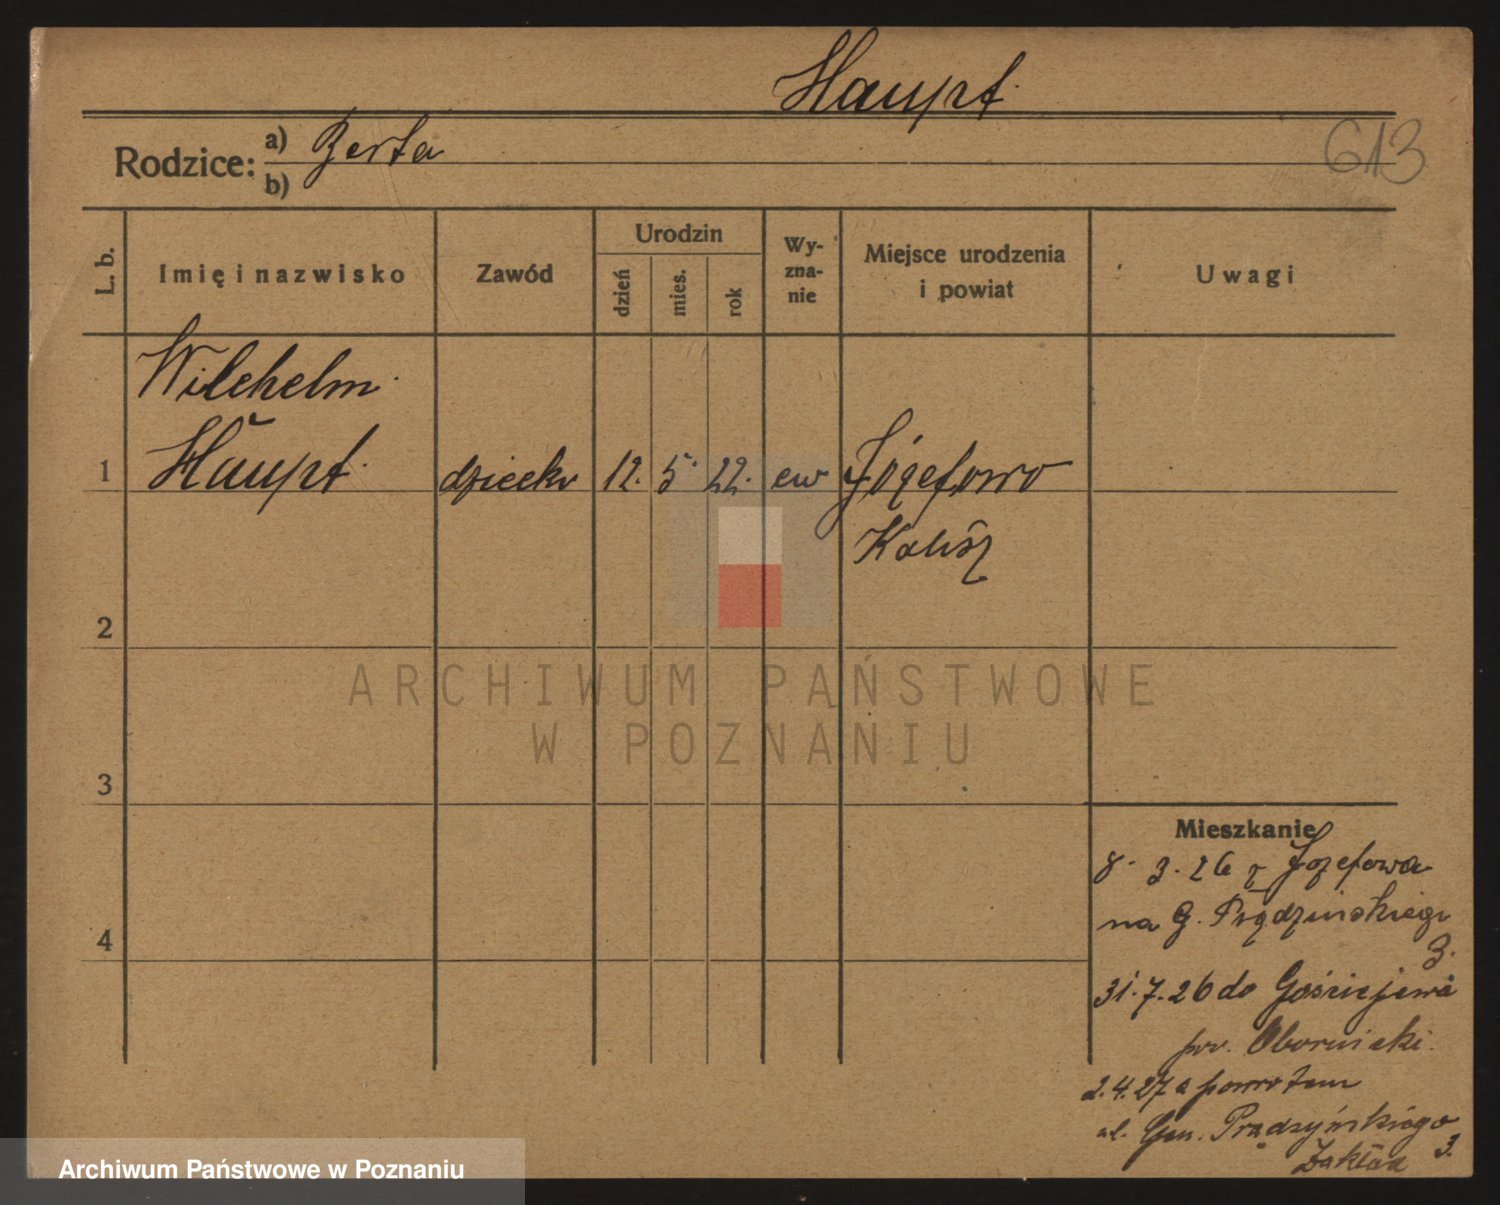 Haupt.
613
Rodzice: a) Berta
b)
L. b.
Imię i nazwisko
Zawód
Urodzin
dzień
mies.
rok
Wy-
zna-
nie
Miejsce urodzenia
i powiat
Uwagi
Wilchelm
1 Haŭpt. dziecko 12. 5. 22. ew Józefowo
Kalisz
2
3
4
ARCHIWUM PAŃSTWOWE
W POZNANIU
Mieszkanie
8. 3. 26 z Józefowa
na G. Prądzinskiego
3.
31.7.26 do Gościejewa
pow. Obornicki.
2.4.27 z powrotem
ul. Gen. Prądzyńskiego
Zakład 3.
Archiwum Państwowe w Poznaniu